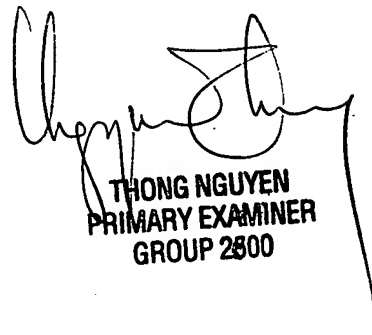 THONG NGUYEN
PRIMARY EXAMINER
GROUP 2800